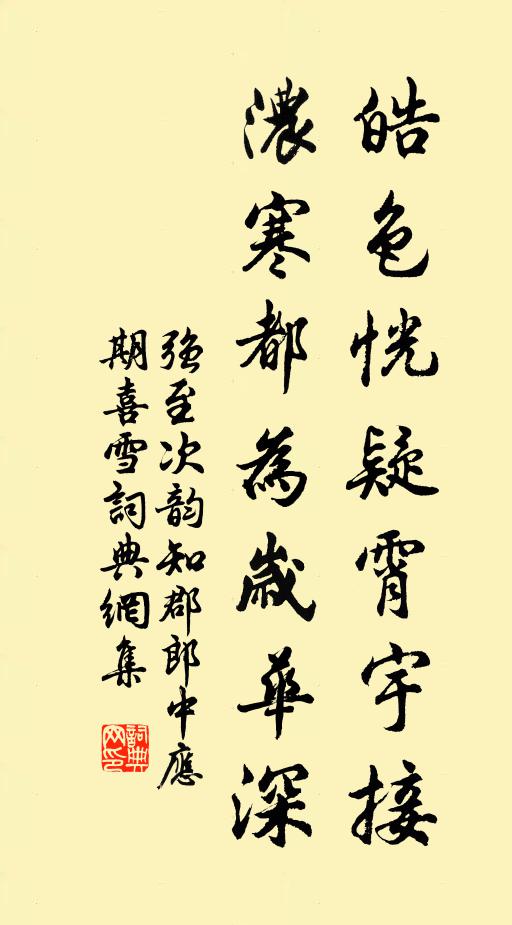 皓色恍疑霄宇接
濃寒都為歲華深
強至次韵知郡郎中應
期喜雪詞典網集
詞典网印